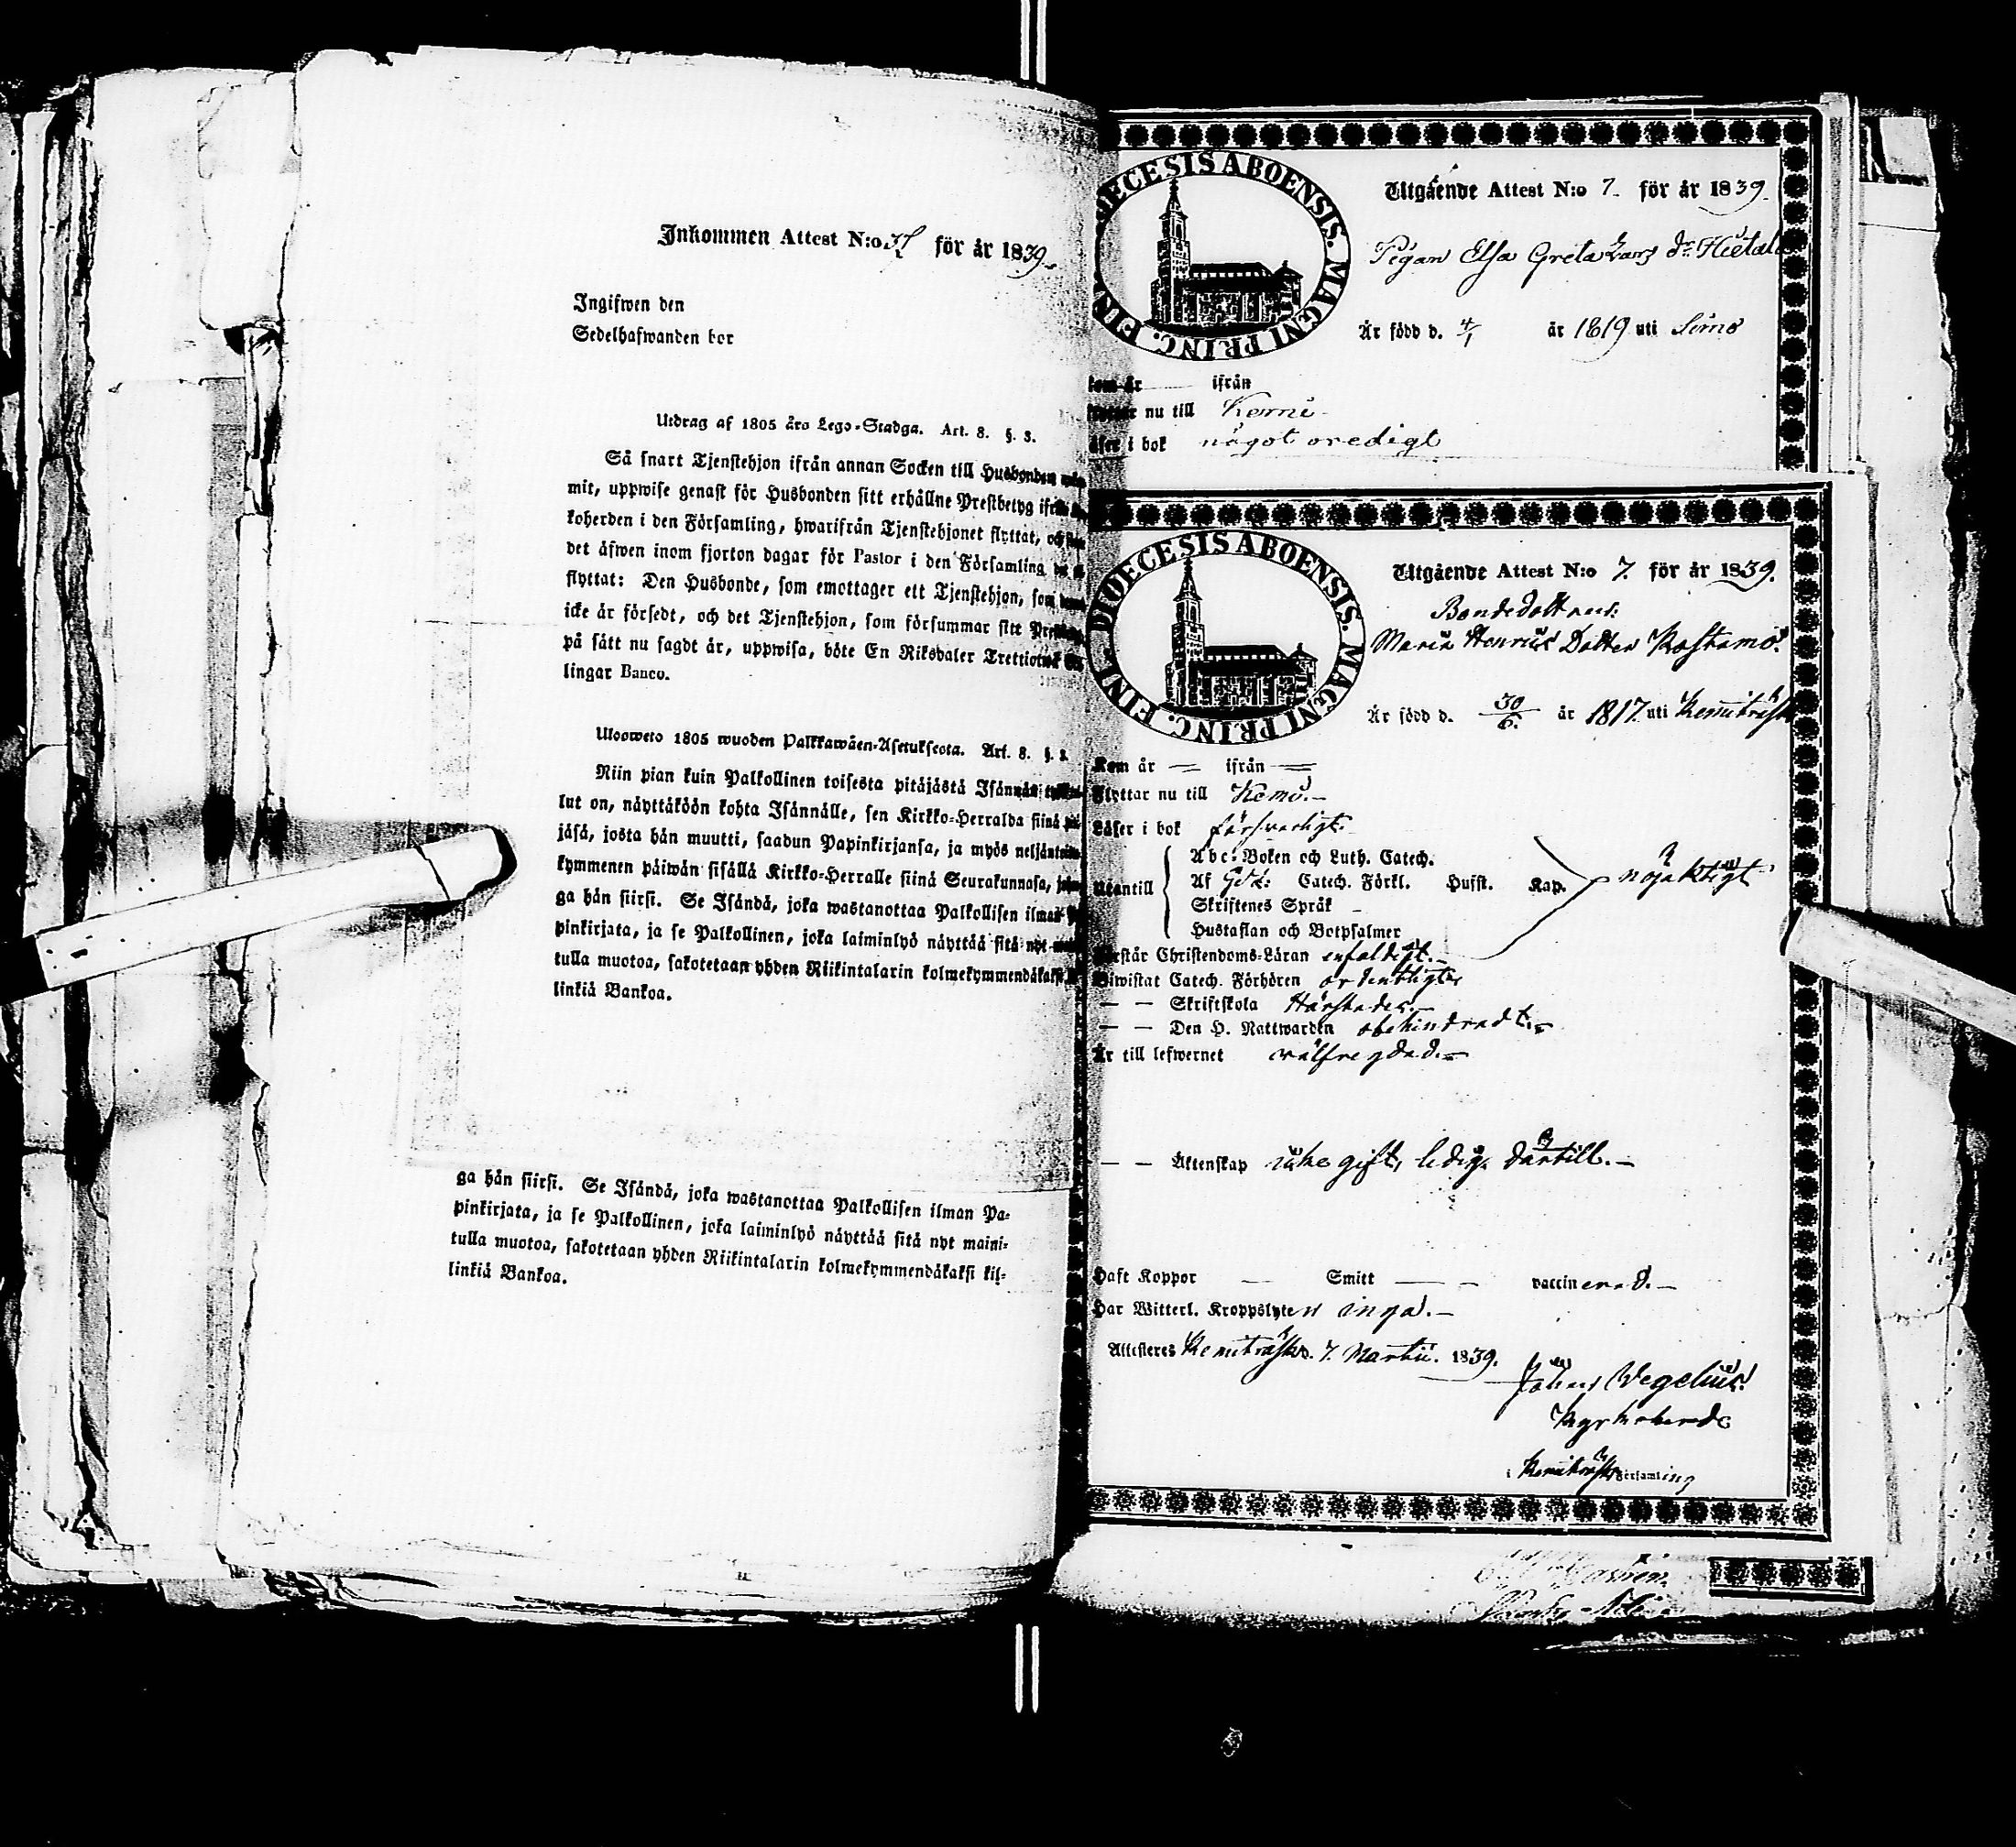 Inkommen Attest N:o 37 för år 1839.
Ingifwen den
Sedelhafwanden bor
Utdrag af 1805 års Lego-Stadga. Art. 8. §. 3.
Så snart Tjenstehjon ifrån annan Socken till Husbonden
mit, uppwise genast för Husbonden sitt erhållne Prestbetyg ifrån
koherden i den Församling, hwarifrån Tjenstehjonet flyttat, och
det äfwen inom fjorton dagar för Pastor i den Församling
flyttat: Den Husbonde, som emottager ett Tjenstehjon, som
icke är försedt, och det Tjenstehjon, som försummar sitt
på sätt nu sagdt är, uppwisa, böte En Riksdaler Trettiotwå
lingar Banco.
Ulosweto 1805 wuoden Palkkawäen-Asetuksesta. Art. 8. §. 3.
Niin pian kuin Palkollinen toisesta pitäjästä Isännän
lut on, näyttäköön kohta Isännälle, sen Kirkko-Herralda siinä
jäsä, josta hän muutti, saadun Papinkirjansa, ja myös neljäntoista
kymmenen päiwän sisällä Kirkko-Herralle siinä Seurakunnasa,
ga hän siirsi. Se Isändä, joka wastanottaa Palkollisen ilman
pinkirjata, ja se Palkollinen, joka laiminlyö näyttää sitä nyt
tulla muotoa, sakotetaan yhden Riikintalarin kolmekymmendäkaksi
linkiä Bankoa.
ga hän siirsi. Se Isändä, joka wastanottaa Palkollisen ilman Pa-
pinkirjata, ja se Palkollinen, joka laiminlyö näyttää sitä nyt maini-
tulla muotoa, sakotetaan yhden Riikintalarin kolmekymmendäkaksi kil-
linkiä Bankoa.
DIOECESIS ABOENSIS. MAGNI PRINC. FINL.
Utgående Attest N:o 7. för år 1839.
Pigan Elsa Greta Lars dr Hietala
Är född d. 4/1 år 1819 uti Simo
Kom år — ifrån
Flyttar nu till Kemi
Läser i bok något oredigt
DIOECESIS ABOENSIS. MAGNI PRINC. FINL.
Utgående Attest N:o 7. för år 1839.
Bondedottren
Maria Henrics Dotter Kostamo.
Är född d. 30/6. år 1817. uti Kemiträsk
Kom år — ifrån —
Flyttar nu till Kemi.—
Läser i bok försvarligt.
Abc-Boken och Luth. Catech.
Utantill Af Catech. Förkl. Hufst. Kap. nöjaktigt
Skriftenes Språk —
Hustaflan och Botpsalmer
Förstår Christendoms-Läran enfaldigt.—
Biwistat Catech. Förhören ordentligt
— — Skriftskola
— — Den H. Nattwarden obehindradt.—
Är till lefwernet wälfregdad.—
— — Äktenskap icke gift, ledig därtill.—
Haft Koppor — Smitt — — vaccinerad.—
Har Witterl. Kroppslyten inga.—
Attesteres Kemiträsk d. 7. Martii. 1839.
Johan Wegelius.
Kyrkoherde
i Kemiträsk Församling